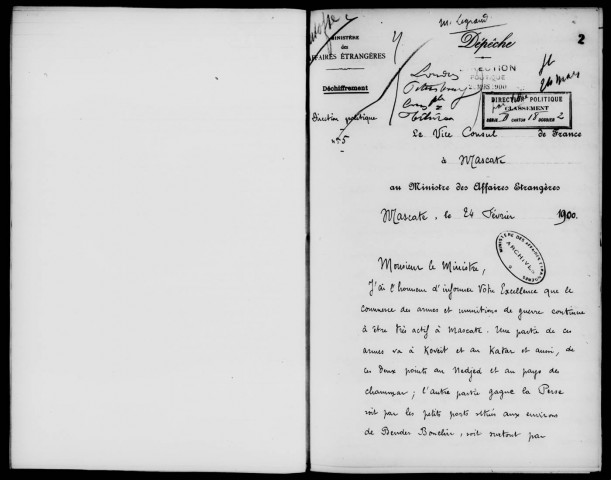 M. Legrand
2
MINISTÈRE
des
AFFAIRES ÉTRANGÈRES
Dépêche
Déchiffrement
DIRECTION
POLITIQUE
MARS 1900
24 mars
Londres
Pétersbourg
Constple
Téhéran
DIRECTION POLITIQUE
CLASSEMENT
SÉRIE D CARTON 18 DOSSIER 2
Direction politique
n° 5
Le Vice Consul de France
à Mascate
au Ministre des Affaires Etrangères
Mascate, le 24 Février 1900.
MINISTÈRE DES AFFAIRES ETRANGÈRES
ARCHIVES
Monsieur le Ministre,
J'ai l'honneur d'informer Votre Excellence que le
commerce des armes et munitions de guerre continue
à être très actif à Mascate. Une partie de ces
armes va à Koveit et au Katar et aussi, de
ces deux points au Nedjed et au pays des
chammar; l'autre partie gagne la Perse
soit par les petits ports situés aux environs
de Bender Bouchir, soit surtout par